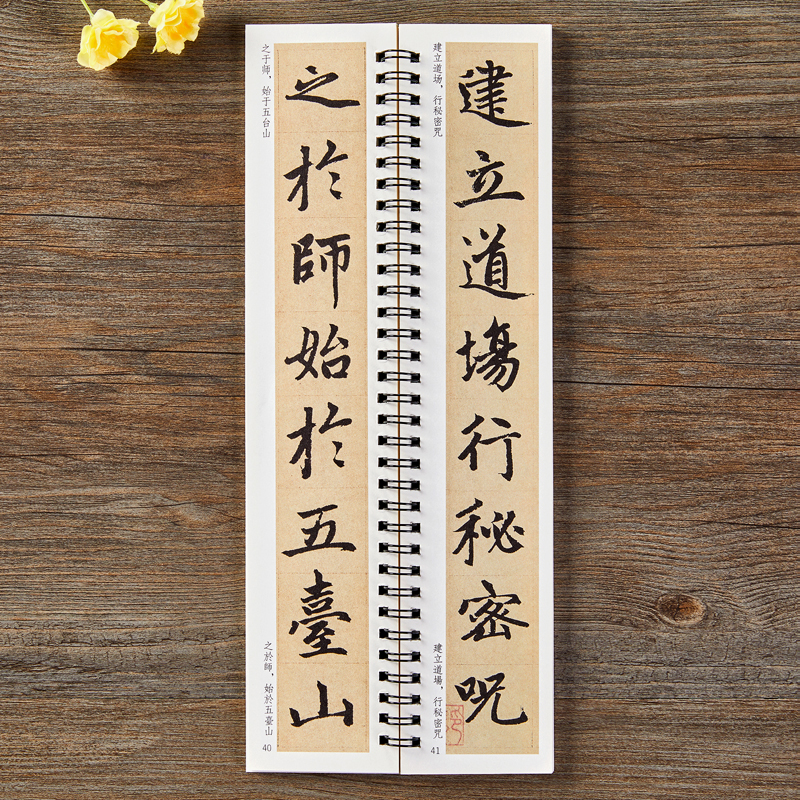 之于师，始于五台山
之於師始於五臺山
之於師，始於五臺山
40
建立道场，行秘密咒
建立道場行秘密呪
建立道場，行秘密咒
41